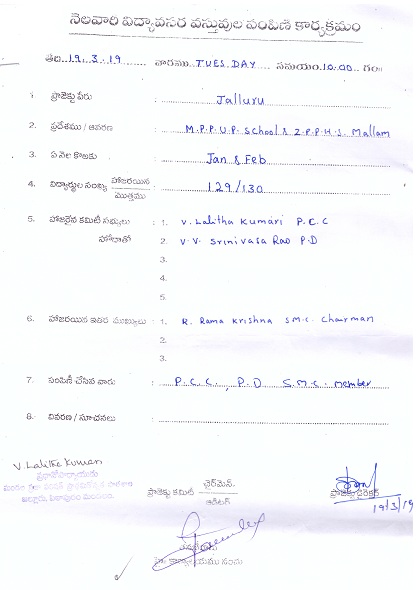 నెలవారి విద్యావసర వస్తువుల పంపిణి కార్యక్రమం
తేది. 19.3.19 వారము. TUESDAY సమయం. 10.00 గం॥
1. ప్రాజెక్టు పేరు : Jalluru
2. ప్రదేశము / ఆవరణ : M.P.P.U.P. School & Z.P.P.H.S. Mallam
3. ఏ నెల కొఱకు : Jan & Feb
4. విద్యార్థుల సంఖ్య హాజరయిన / మొత్తము : 129/130
5. హాజరైన కమిటీ సభ్యులు : 1. V. Lalitha Kumari P.C.C
హోదాతో 2. V.V. Srinivasa Rao P.D
3.
4.
5.
6. హాజరయిన ఇతర ముఖ్యులు : 1. R. Rama Krishna S.M.C. Chairman
2.
3.
7. పంపిణీ చేసిన వారు : P.C.C., P.D S.M.C. member
8. వివరణ / సూచనలు :
V. Lalitha Kumari
ప్రాజెక్టు కమిటీ ఛైర్మెన్
ప్రాజెక్టు డైరెక్టర్
19/3/19